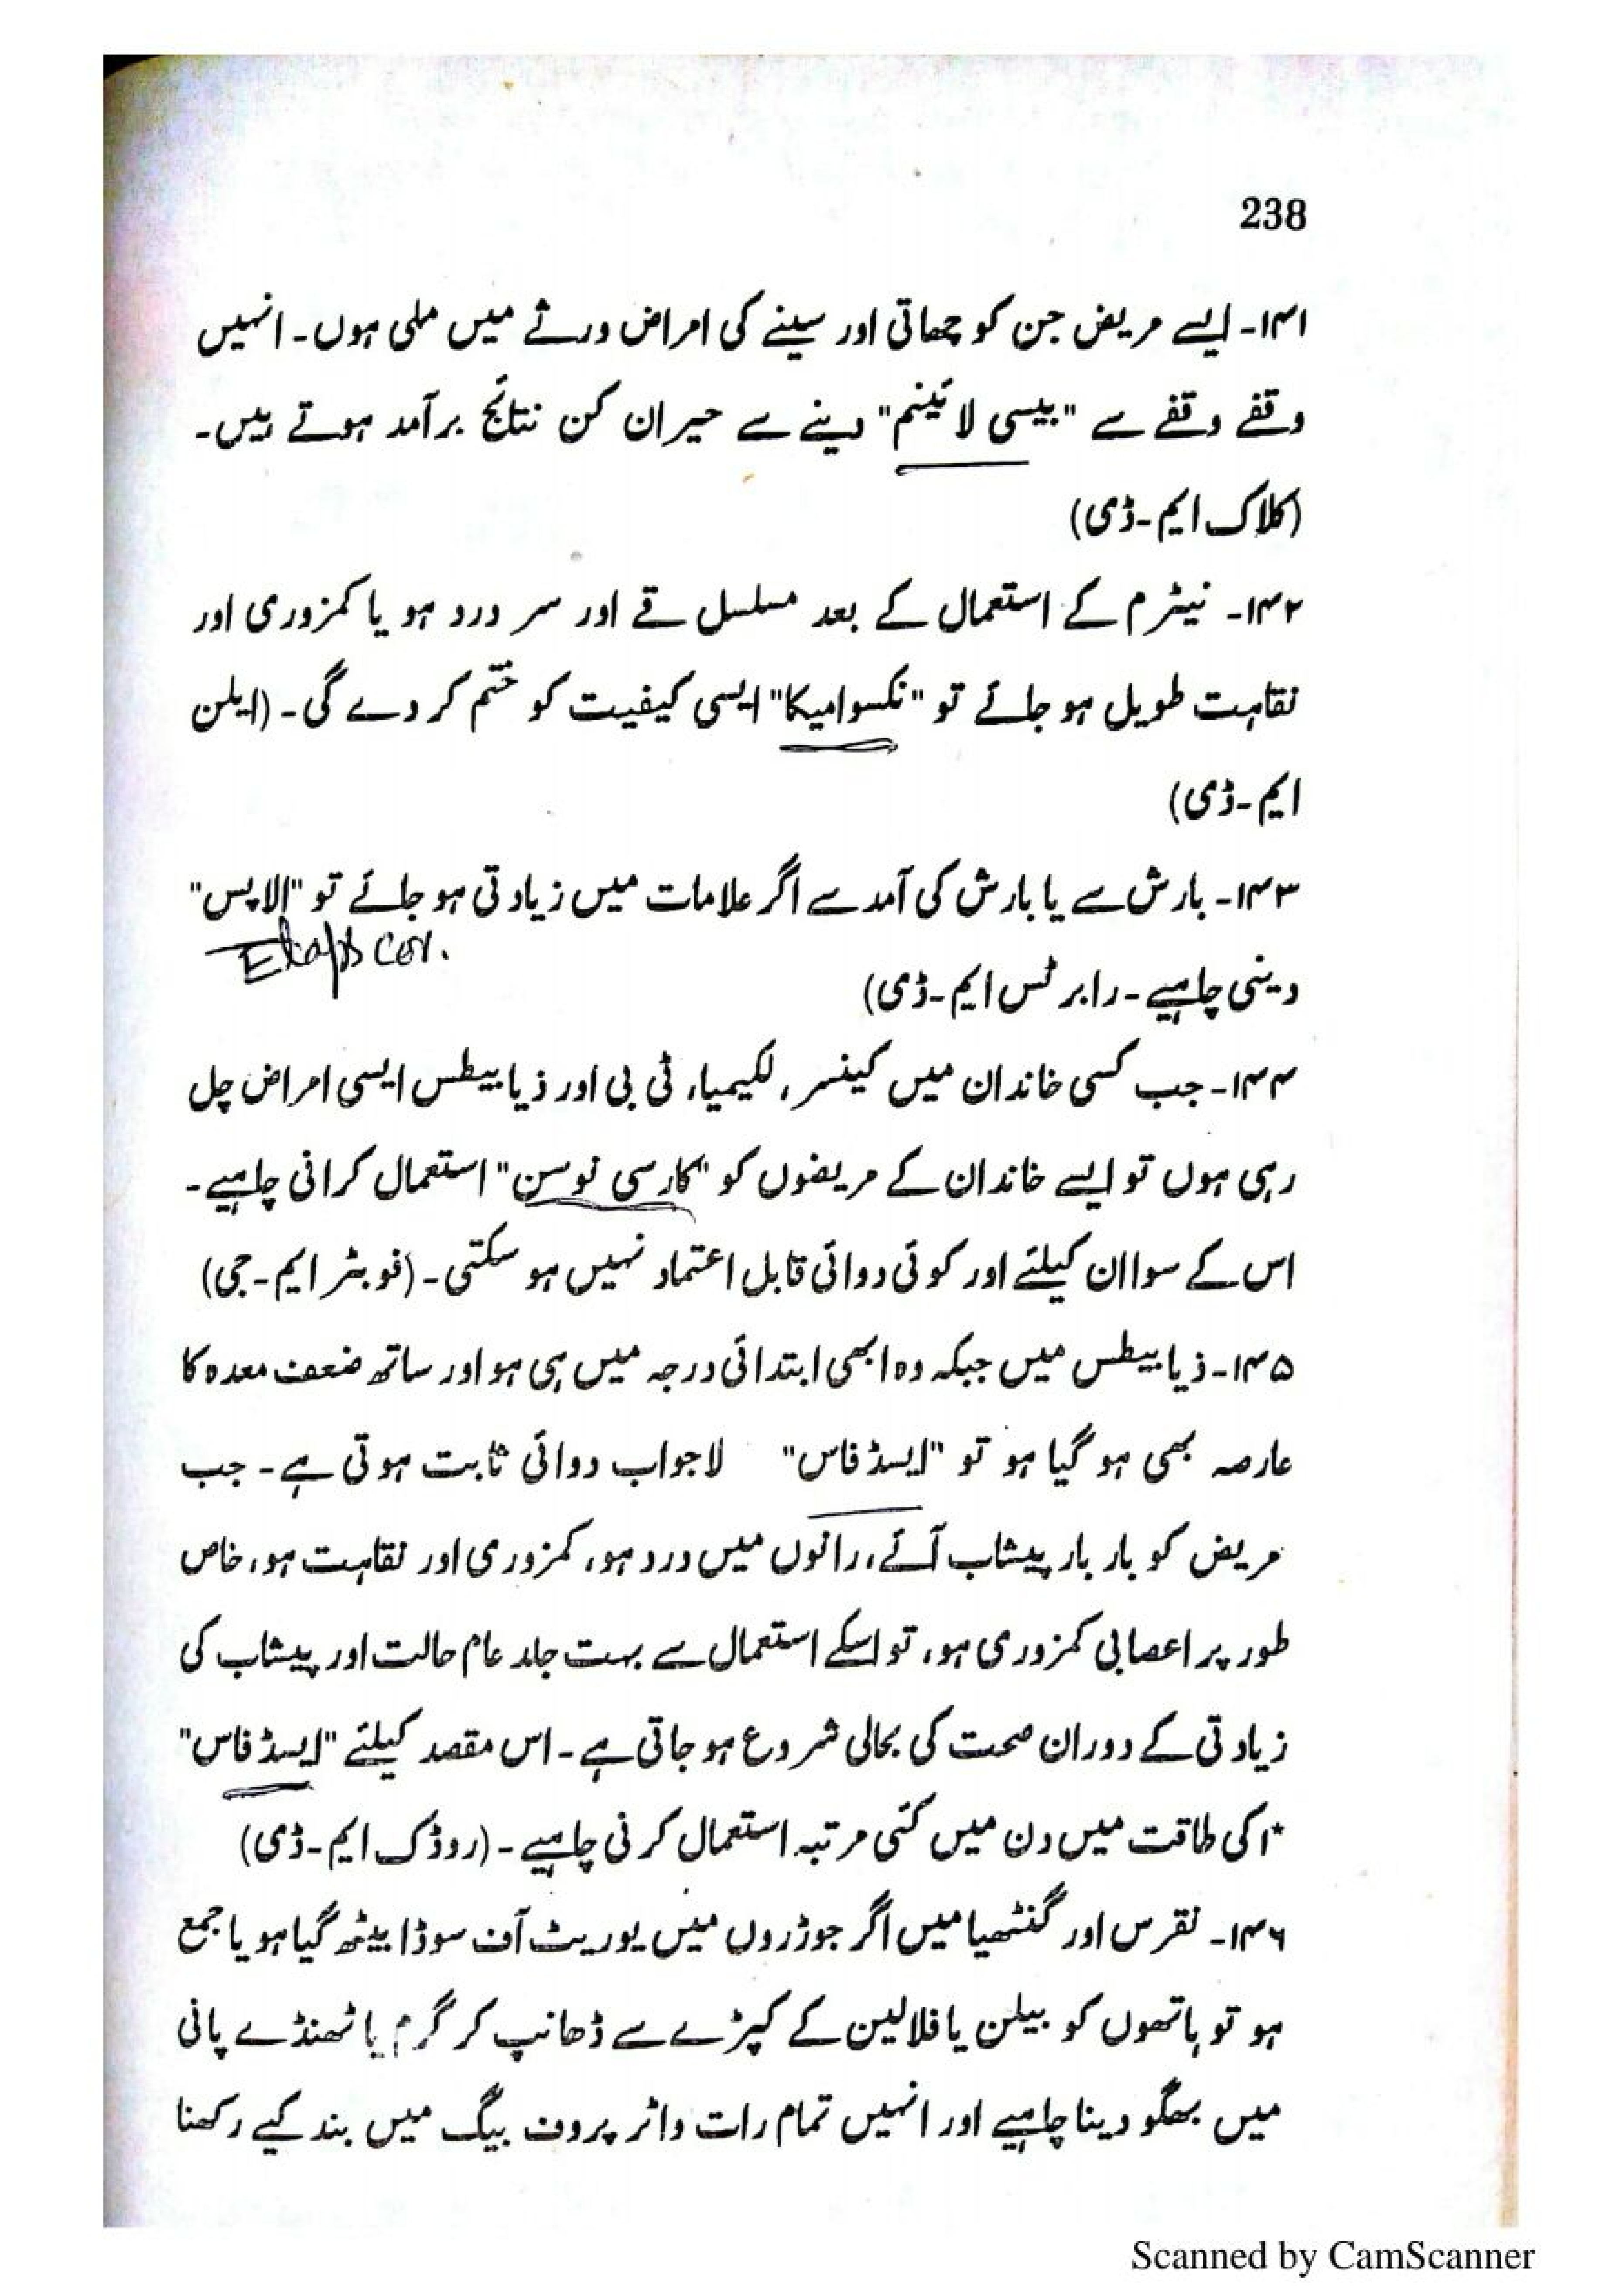 238
۱۴۱- ایسے مریض جن کو چھاتی اور سینے کی امراض ورثے میں ملی ہوں۔ انہیں
وقفے وقفے سے "بیسی لائینم" دینے سے حیران کن نتائج برآمد ہوتے ہیں۔
(کلاک ایم۔ڈی)
۱۴۲- نیٹرم کے استعمال کے بعد مسلسل قے اور سر درد ہو یا کمزوری اور
نقاہت طویل ہو جائے تو "نکسوامیکا" ایسی کیفیت کو ختم کر دے گی۔ (ایلن
ایم۔ڈی)
۱۴۳- بارش سے یا بارش کی آمد سے اگر علامات میں زیادتی ہو جائے تو "الاپس"
Elaps cor.
دینی چاہیے۔ رابرٹس ایم۔ڈی)
۱۴۴- جب کسی خاندان میں کینسر، لکیمیا، ٹی بی اور ذیابیطس ایسی امراض چل
رہی ہوں تو ایسے خاندان کے مریضوں کو "کارسی نوسن" استعمال کرانی چاہیے۔
اس کے سوا ان کیلئے اور کوئی دوائی قابل اعتماد نہیں ہو سکتی۔ (فوبٹر ایم۔جی)
۱۴۵- ذیابیطس میں جبکہ وہ ابھی ابتدائی درجہ میں ہی ہو اور ساتھ ضعف معدہ کا
عارصہ بھی ہو گیا ہو تو "ایسڈ فاس" لاجواب دوائی ثابت ہوتی ہے۔ جب
مریض کو بار بار پیشاب آئے، رانوں میں درد ہو، کمزوری اور نقاہت ہو، خاص
طور پر اعصابی کمزوری ہو، تو اسکے استعمال سے بہت جلد عام حالت اور پیشاب کی
زیادتی کے دوران صحت کی بحالی شروع ہو جاتی ہے۔ اس مقصد کیلئے "ایسڈ فاس"
۱* کی طاقت میں دن میں کئی مرتبہ استعمال کرنی چاہیے۔ (روڈک ایم۔ڈی)
۱۴۶- نقرس اور گنٹھیا میں اگر جوڑوں میں یوریٹ آف سوڈا بیٹھ گیا ہو یا جمع
ہو تو ہاتھوں کو بیلن یا فلالین کے کپڑے سے ڈھانپ کر گرم یا ٹھنڈے پانی
میں بھگو دینا چاہیے اور انہیں تمام رات واٹر پروف بیگ میں بند کیے رکھنا
Scanned by CamScanner